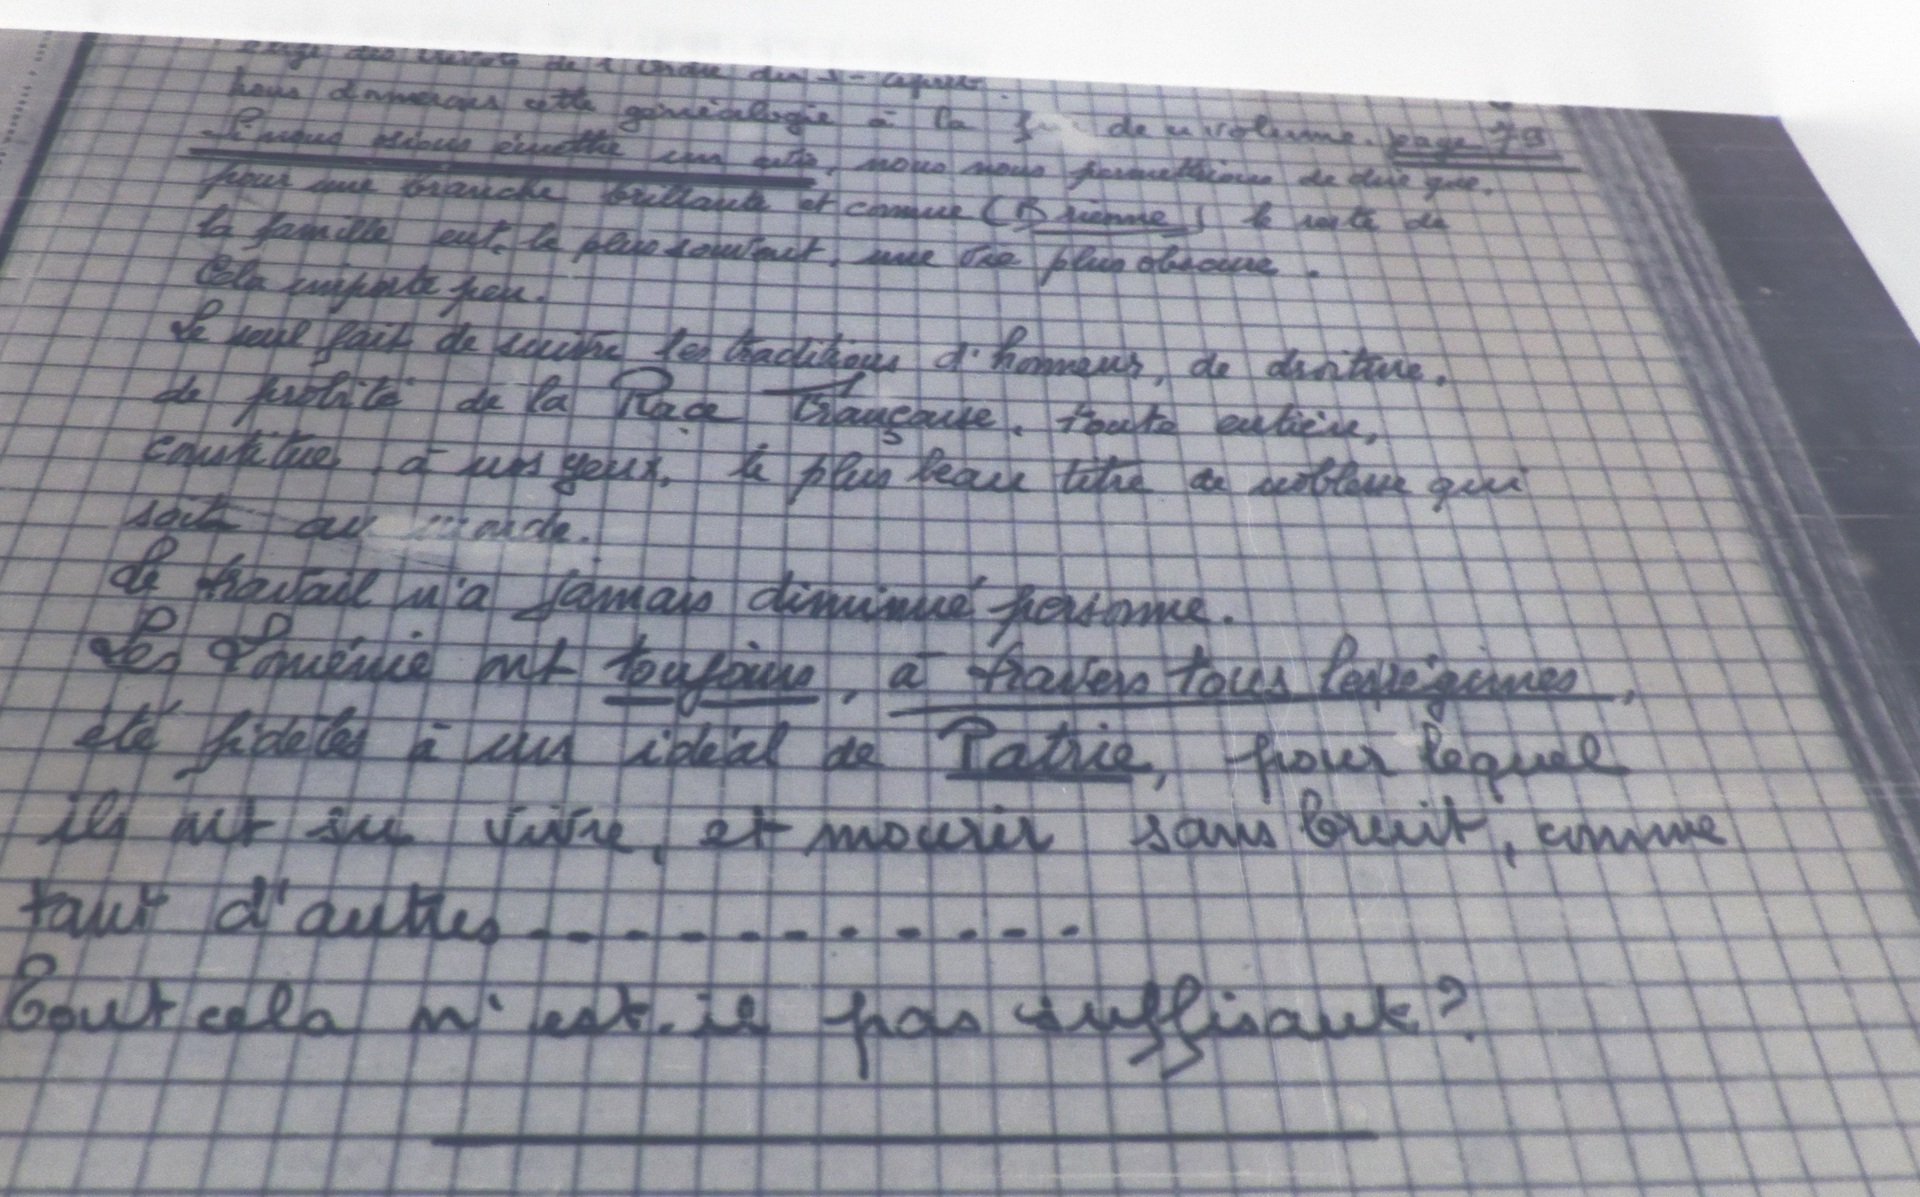 exigé des brevets de l'Ordre du St-Esprit.
Nous donnerons cette généalogie à la fin de ce volume. page 79
Si nous osions émettre un avis, nous nous permettrions de dire que,
pour une branche brillante et connue (Brienne) le reste de
la famille eut, le plus souvent, une vie plus obscure.
Cela importe peu.
Le seul fait de suivre les traditions d'honneur, de droiture,
de probité de la Race Française, toute entière,
constitue, à nos yeux, le plus beau titre de noblesse qui
soit au monde.
Le travail n'a jamais diminué personne.
Les Loménie ont toujours, à travers tous les régimes,
été fidèles à un idéal de Patrie, pour lequel
ils ont su vivre, et mourir sans bruit, comme
tant d'autres.............
Tout cela n'est-il pas suffisant?